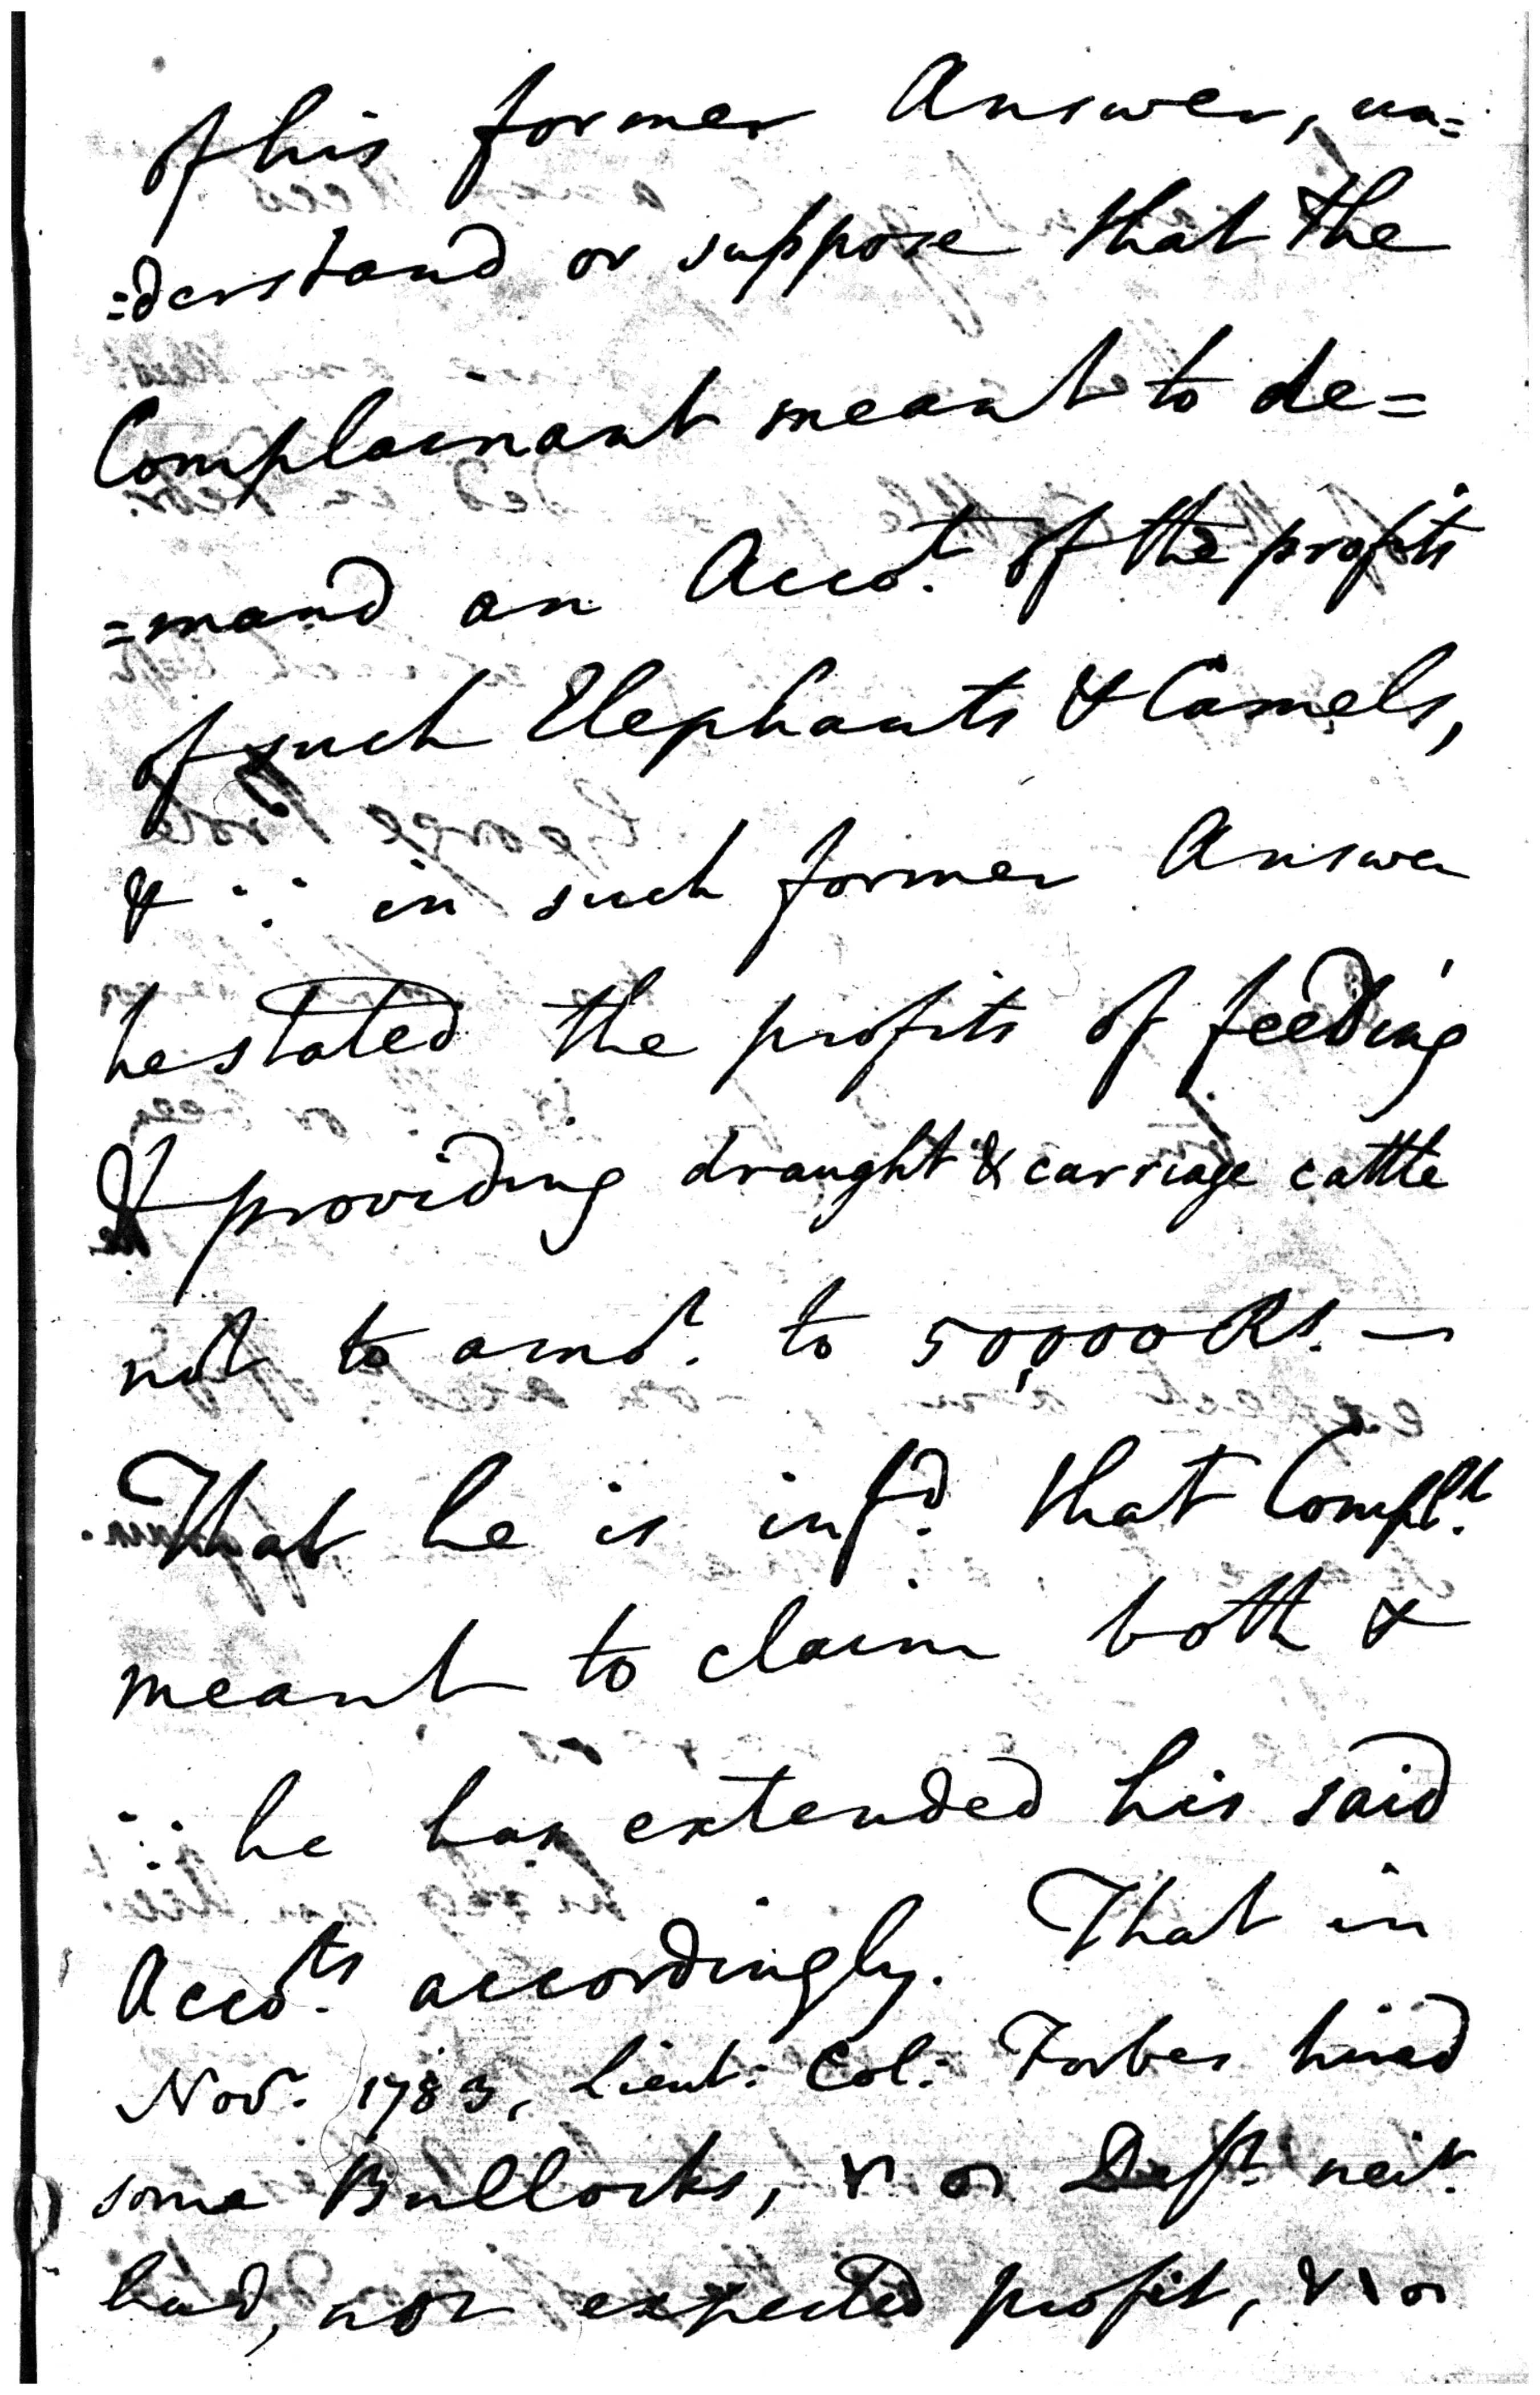 of his former Answer, un=
=derstand or suppose that the
Complainant meant to de=
=mand an Acco.t of the profits
of such Elephants & Camels,
& ∴ in such former Answer
he stated the profits of feeding
& providing draught & carriage cattle
not to amo.t to 50,000 Rs. —
That he is inf.d that Compl.t
meant to claim both &
∴ he has extended his said
Acco.ts accordingly. That in
Nov.r 1783, Lieut: Col: Forbes hired
some Bullocks, Def.t neit.r
had, nor expected profit,